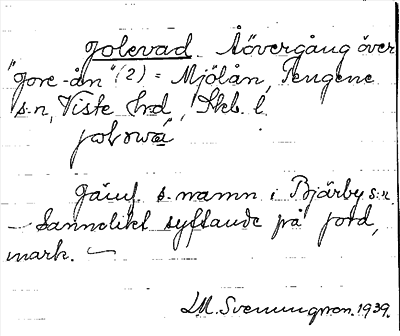 Jolevad. Åövergång över
"Jore-ån" (2) = Mjölån, Tengene
s:n, Viste hrd, Skb. l.
jolowa
Jämf s. namn i Bjärby s:n
- Sannolikt syftande på jord,
mark. -
D.M. Svenungson. 1939.